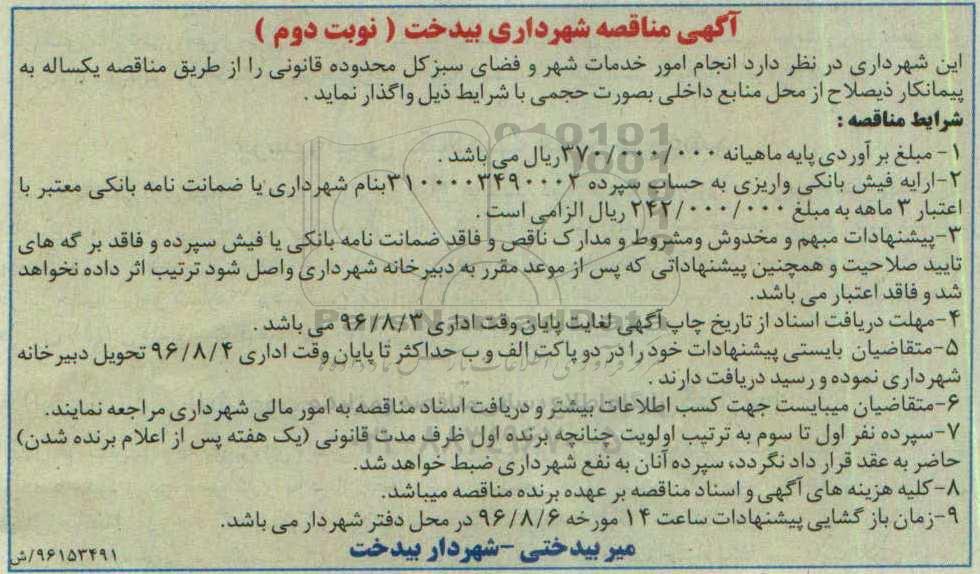 آگهی مناقصه شهرداری بیدخت ( نوبت دوم )
این شهرداری در نظر دارد انجام امور خدمات شهر و فضای سبزکل محدوده قانونی را از طریق مناقصه یکساله به
پیمانکار ذیصلاح از محل منابع داخلی بصورت حجمی با شرایط ذیل واگذار نماید .
شرایط مناقصه :
۱- مبلغ بر آوردی پایه ماهیانه ۳۷۰/۰۰۰/۰۰۰ریال می باشد .
۲-ارایه فیش بانکی واریزی به حساب سپرده ۳۱۰۰۰۰۳۴۹۰۰۰۲بنام شهرداری یا ضمانت نامه بانکی معتبر با
اعتبار ۳ ماهه به مبلغ ۲۴۲/۰۰۰/۰۰۰ ریال الزامی است .
۳-پیشنهادات مبهم و مخدوش ومشروط و مدارک ناقص و فاقد ضمانت نامه بانکی یا فیش سپرده و فاقد بر گه های
تایید صلاحیت و همچنین پیشنهاداتی که پس از موعد مقرر به دبیرخانه شهرداری واصل شود ترتیب اثر داده نخواهد
شد و فاقد اعتبار می باشد.
۴-مهلت دریافت اسناد از تاریخ چاپ آگهی لغایت پایان وقت اداری ۹۶/۸/۳ می باشد .
۵-متقاضیان بایستی پیشنهادات خود را در دو پاکت الف و ب حداکثر تا پایان وقت اداری ۹۶/۸/۴ تحویل دبیرخانه
شهرداری نموده و رسید دریافت دارند .
۶-متقاضیان میبایست جهت کسب اطلاعات بیشتر و دریافت اسناد مناقصه به امور مالی شهرداری مراجعه نمایند.
۷-سپرده نفر اول تا سوم به ترتیب اولویت چنانچه برنده اول ظرف مدت قانونی (یک هفته پس از اعلام برنده شدن)
حاضر به عقد قرار داد نگردد، سپرده آنان به نفع شهرداری ضبط خواهد شد.
۸-کلیه هزینه های آگهی و اسناد مناقصه بر عهده برنده مناقصه میباشد.
۹-زمان باز گشایی پیشنهادات ساعت ۱۴ مورخه ۹۶/۸/۶ در محل دفتر شهردار می باشد.
میر بیدختی -شهردار بیدخت
۹۶۱۵۳۴۹۱/ش